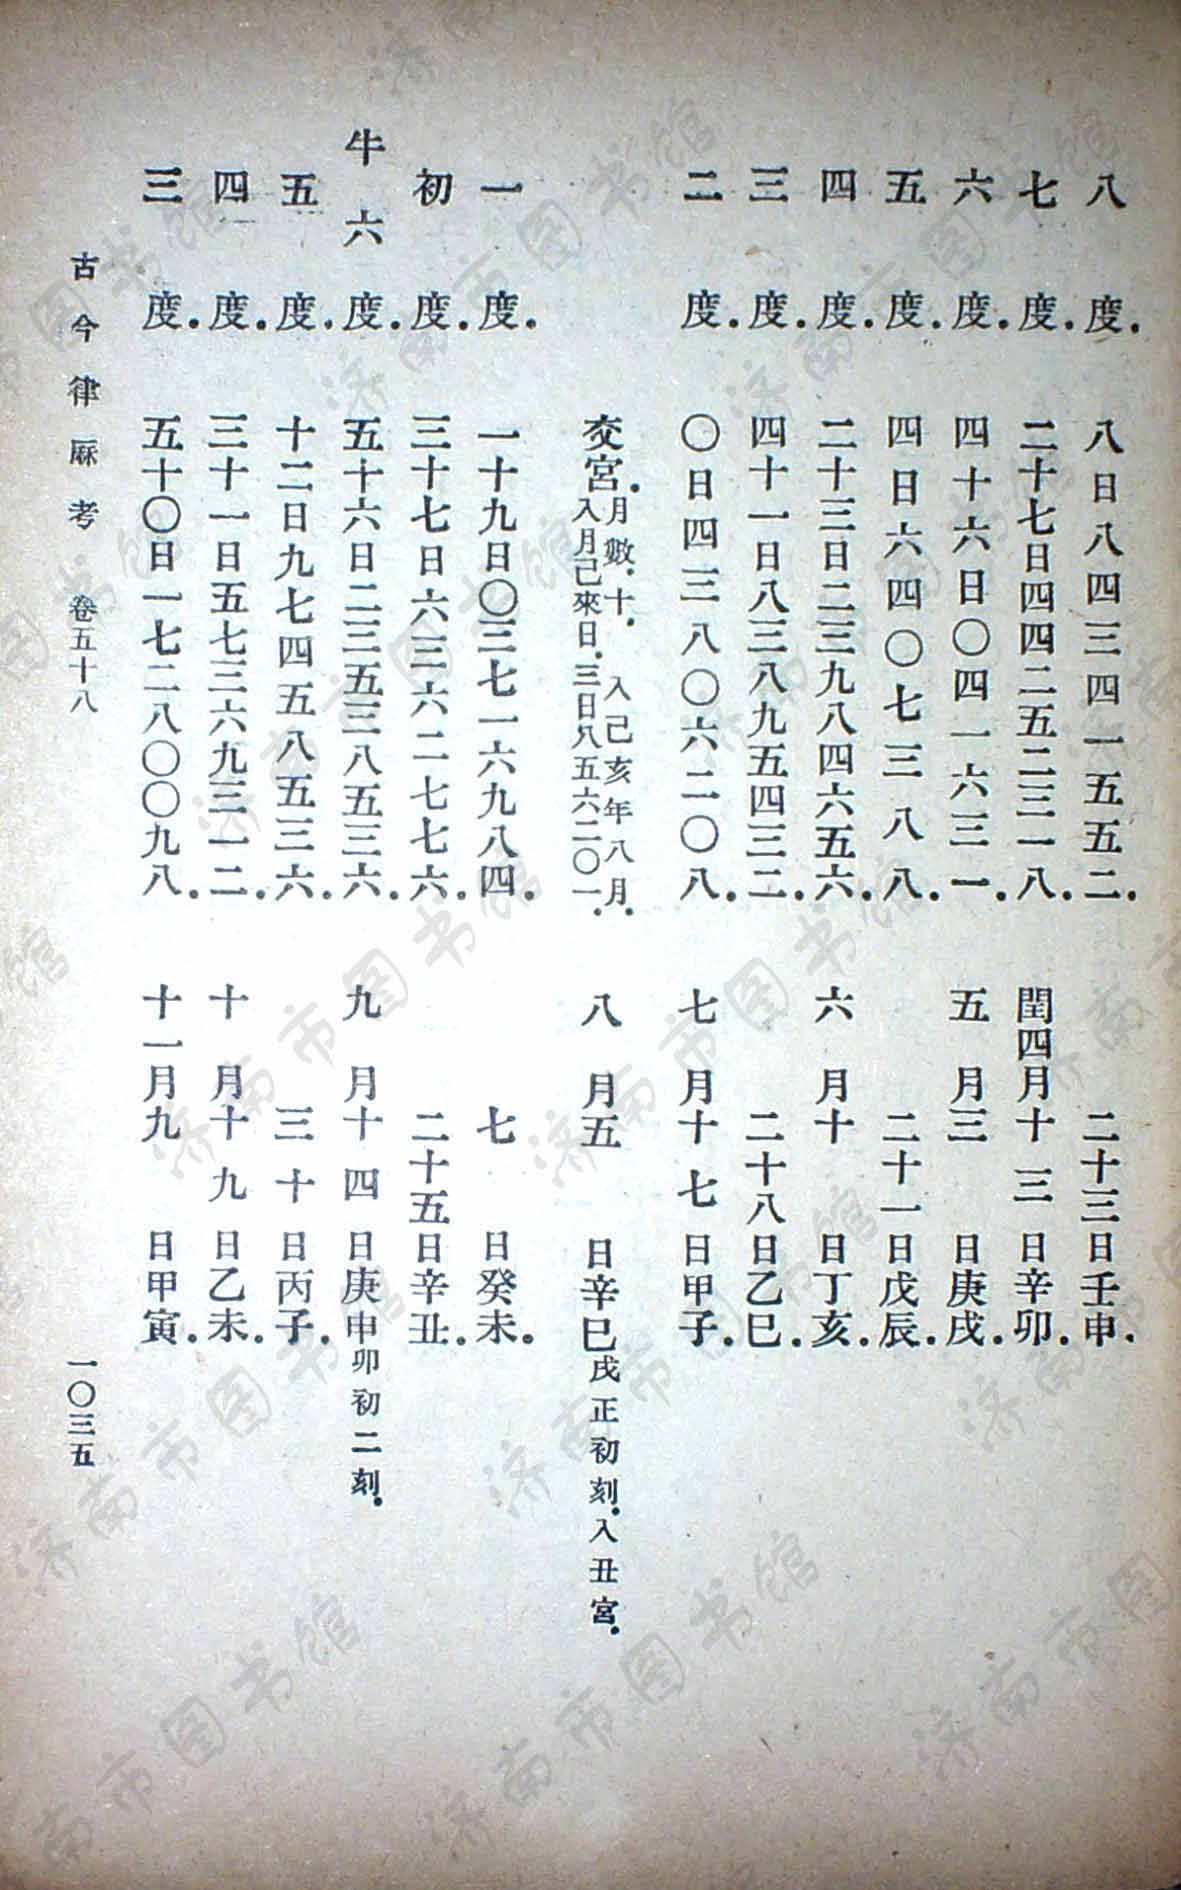 八度.八日八四三四一五五二.二十三日壬申.
七度.二十七日四四二五二三一八.閏四月十三日辛卯.
六度.四十六日〇四一六三一.五月三日庚戌.
五度.四日六四〇七三八八.二十一日戊辰.
四度.二十三日二三九八四六五六.六月十日丁亥.
三度.四十一日八三八九五四三二.二十八日乙巳.
二度.〇日四三八〇六二〇八.七月十七日甲子.
交宮.月數.十.入己亥年八月.入月已來日.三日八五六二〇一.八月五日辛巳戌正初刻.入丑宮.
一度.一十九日〇三七一六九八四.七日癸未.
初度.三十七日六三六二七七六.二十五日辛丑.
牛六度.五十六日二三五三八五三六.九月十四日庚申卯初二刻.
五度.十二日九七四五八五三六.三十日丙子.
四度.三十一日五七三六九三一二.十月十九日乙未.
三度.五十〇日一七二八〇〇九八.十一月九日甲寅.
古今律厤考 卷五十八 一〇三五